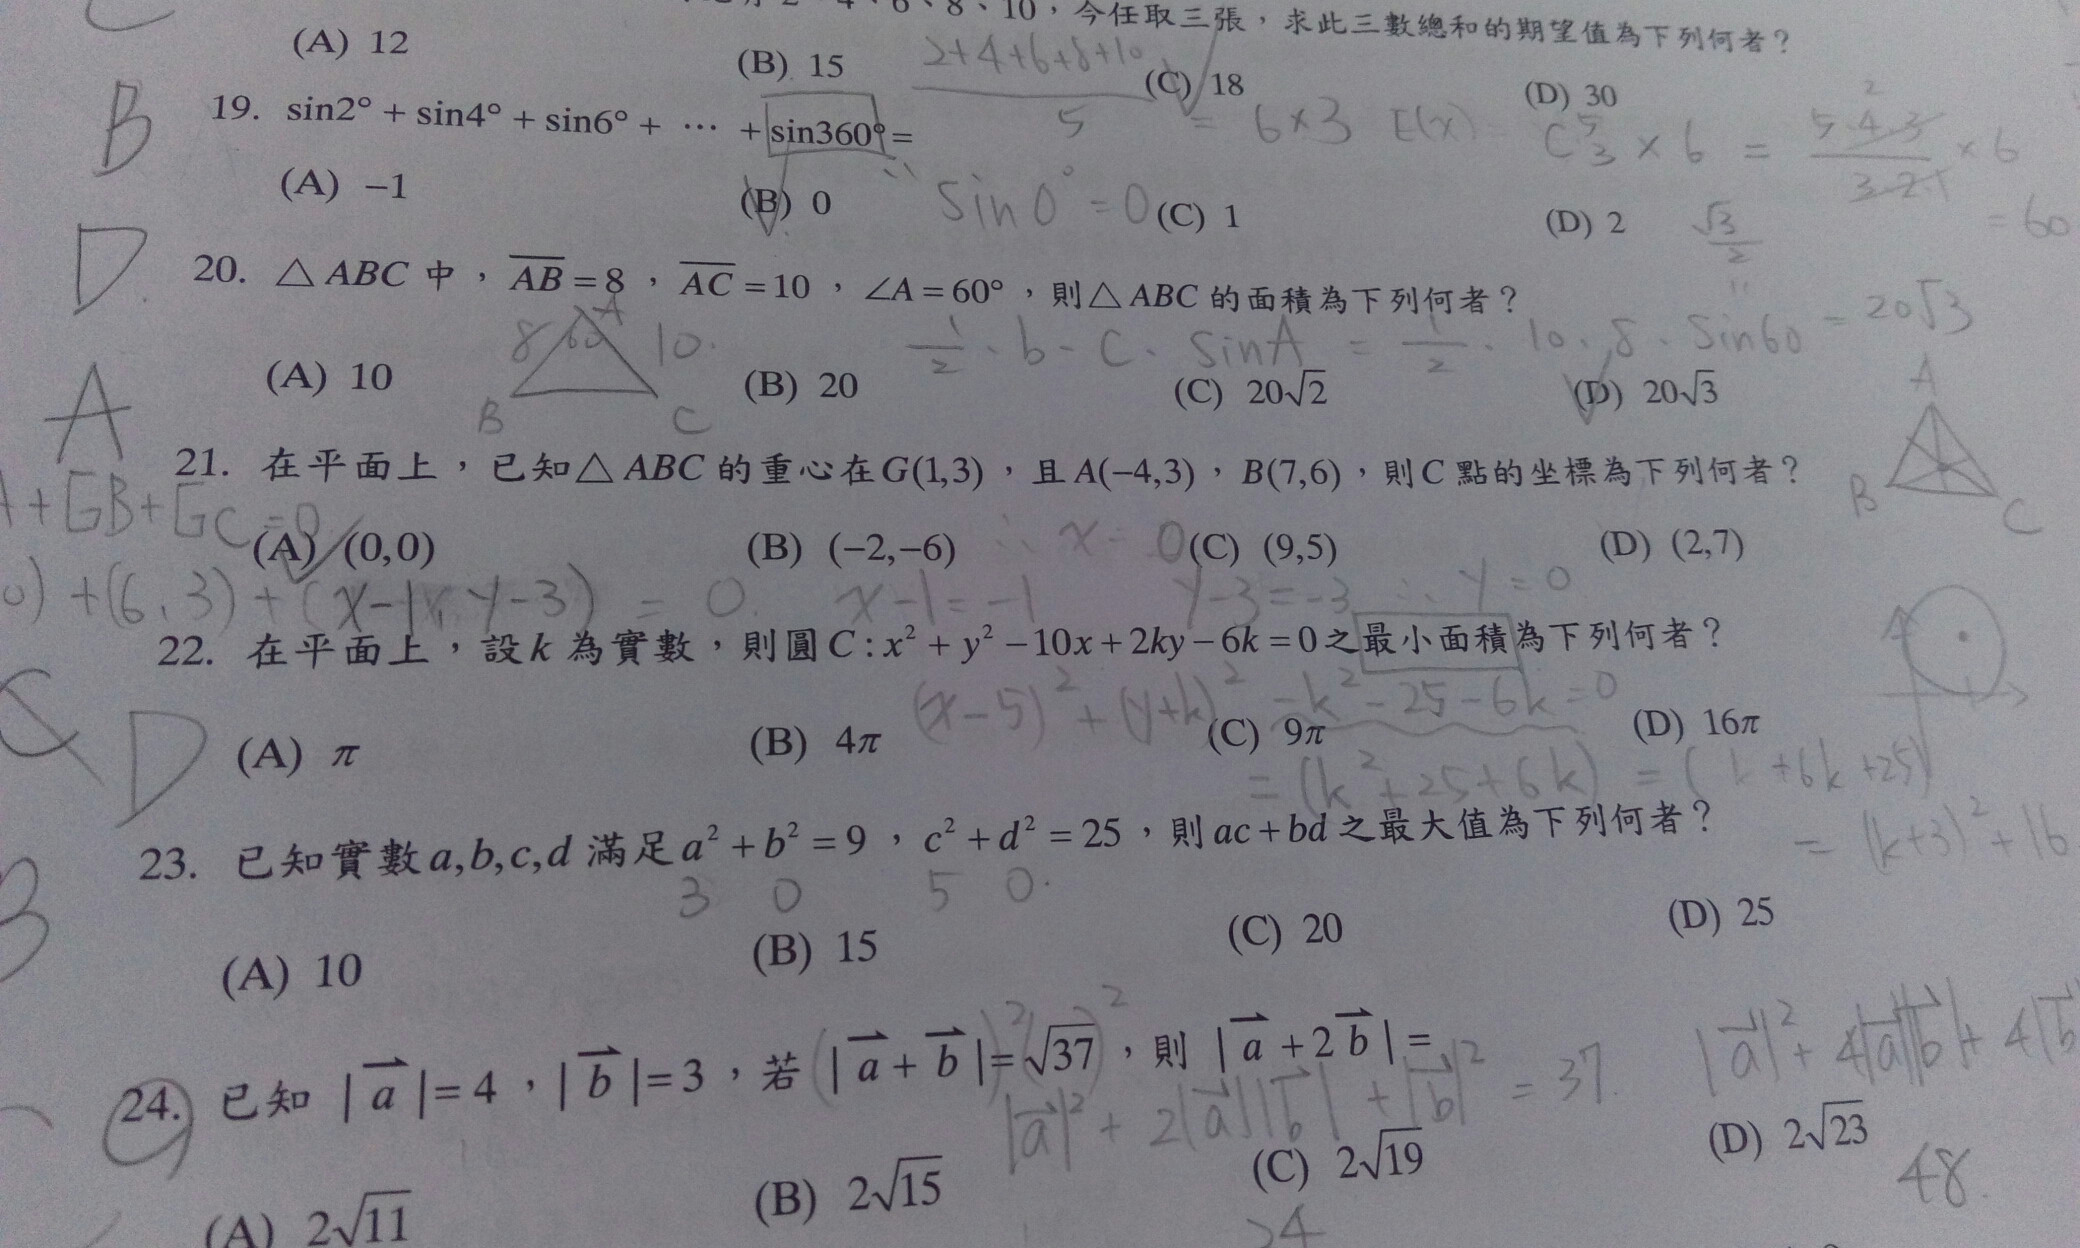 2、4、6、8、10，今任取三張，求此三數總和的期望值為下列何者？
(A) 12 (B) 15 (C) 18 (D) 30
2+4+6+8+10
5
= 6×3 E(x) C⁵₃ × 6 = 5·4·3 / 3·2·1 × 6
= 60
B
19. sin2° + sin4° + sin6° + ⋯ + sin360° =
(A) −1 (B) 0 (C) 1 (D) 2
sin0° = 0
D
20. △ABC 中，AB = 8，AC = 10，∠A = 60°，則△ABC 的面積為下列何者？
8 60 A 10
B C
1/2 · b · c · sinA = 1/2 · 10 · 8 · sin60 = 20√3
√3/2
(A) 10 (B) 20 (C) 20√2 (D) 20√3
A
21. 在平面上，已知△ABC 的重心在G(1,3)，且A(−4,3)，B(7,6)，則C 點的坐標為下列何者？
A
B C
+GB+GC=0
(A) (0,0) (B) (−2,−6) (C) (9,5) (D) (2,7)
∴ x = 0
+(6,3)+(x−1, y−3) = 0. x−1=−1 y−3=−3 ∴ y=0
22. 在平面上，設k 為實數，則圓C : x² + y² −10x + 2ky − 6k = 0之最小面積為下列何者？
(x−5)² + (y+k)² −k²−25−6k=0
D
(A) π (B) 4π (C) 9π (D) 16π
= (k²+25+6k) = (k+6k+25)
= (k+3)²+16
23. 已知實數a,b,c,d 滿足a² + b² = 9，c² + d² = 25，則ac + bd 之最大值為下列何者？
3 0 5 0
B
(A) 10 (B) 15 (C) 20 (D) 25
24. 已知 |a| = 4，|b| = 3，若(|a + b|)² = (√37)²，則 |a + 2b| =
|a|² + 2|a||b| + |b|² = 37.
|a|² + 4|a||b| + 4|b
(A) 2√11 (B) 2√15 (C) 2√19 (D) 2√23
24
48